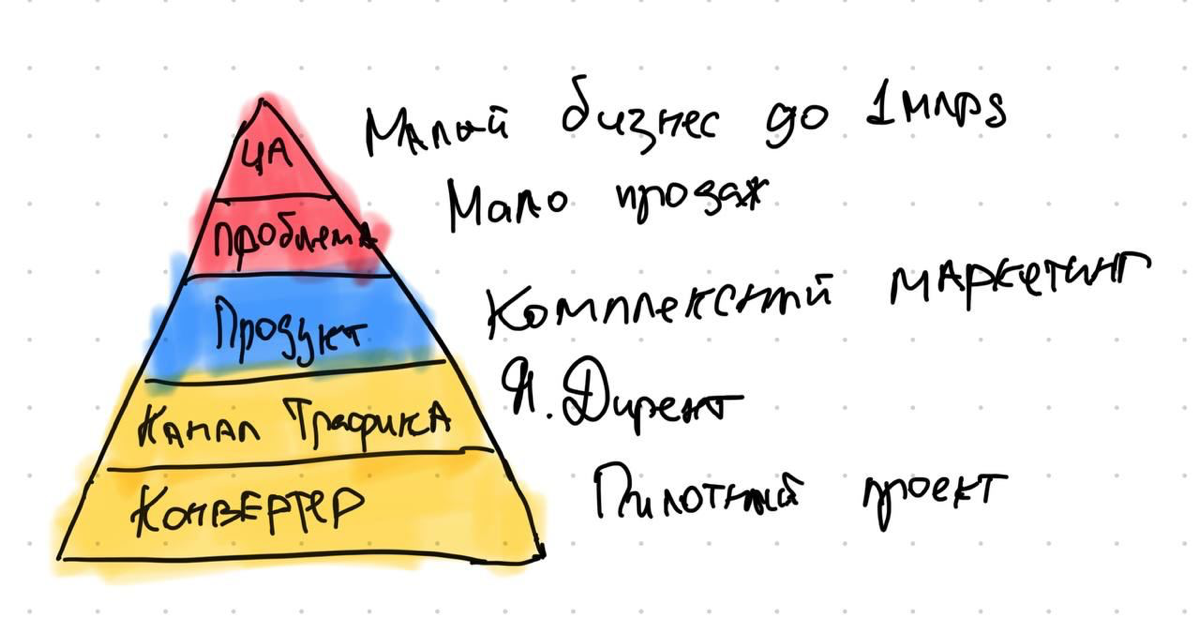 ЦА
Малый бизнес до 1 млрд
Проблема
Мало продаж
Продукт
Комплексный маркетинг
Канал Трафика
Я. Директ
Конвертер
Пилотный проект